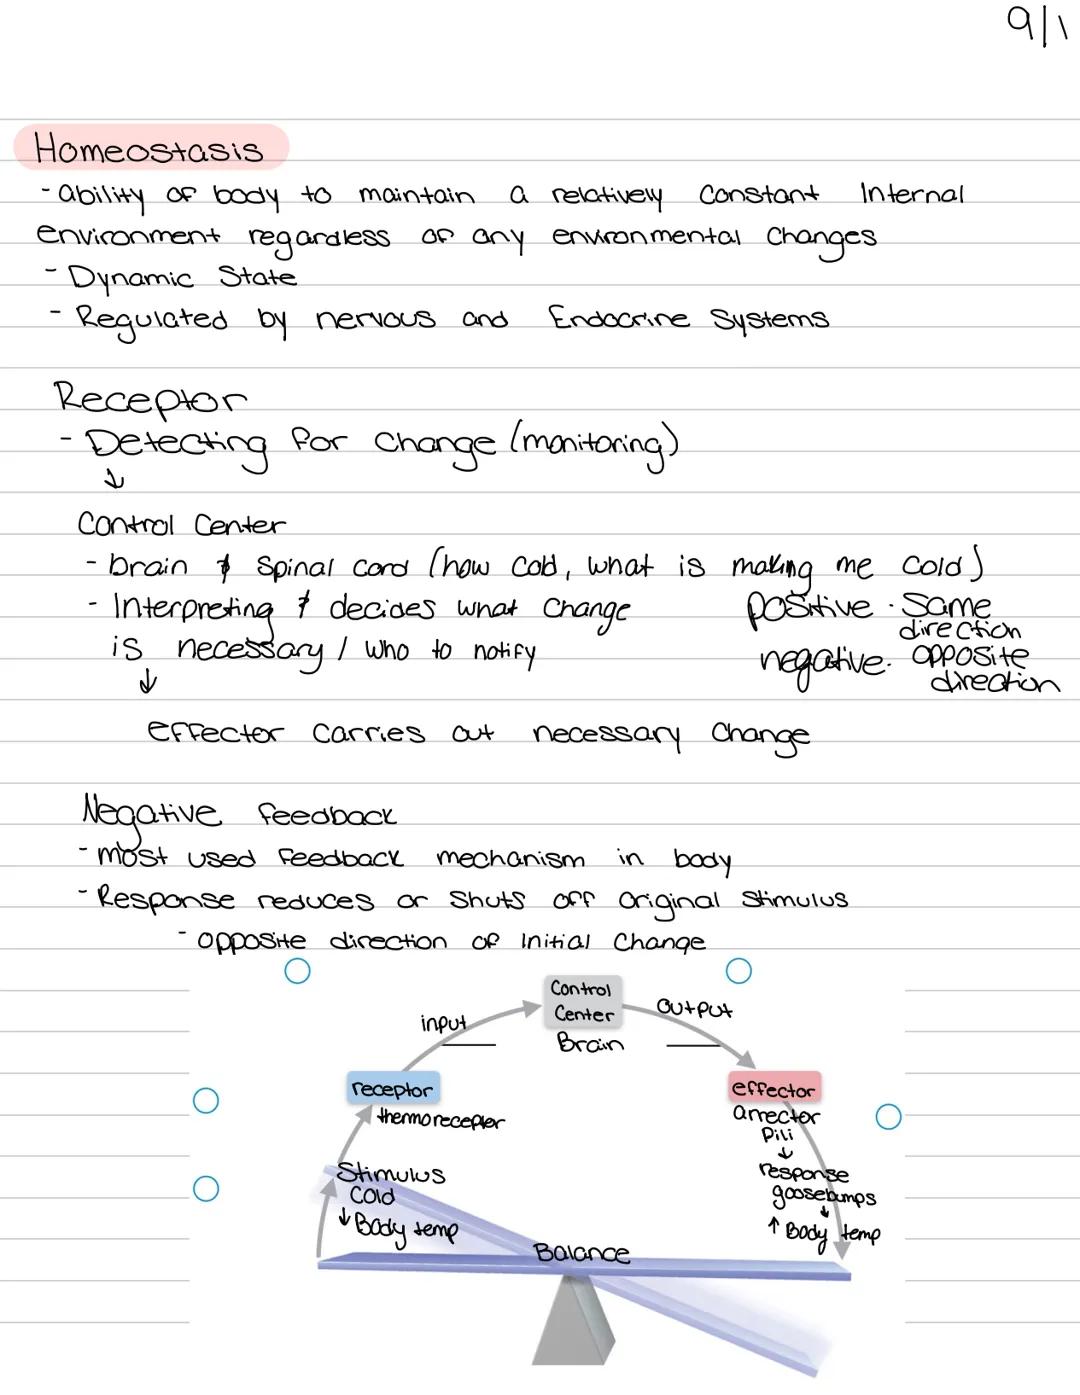 9/1
Homeostasis
- ability of body to maintain a relatively constant Internal
environment regardless of any environmental changes
- Dynamic State
- Regulated by nervous and Endocrine Systems
Receptor
- Detecting for change (monitoring)
↓
Control Center
- brain & spinal cord (how cold, what is making me cold)
- Interpreting & decides what change
is necessary / who to notify
positive · same
direction
negative · opposite
direction
↓
effector carries out necessary change
Negative feedback
- most used feedback mechanism in body
- Response reduces or shuts off original stimulus
- opposite direction of initial change
Control
Center
Brain
input
output
receptor
thermoreceptor
effector
arrector
pili
↓
response
goosebumps
↓
↑ Body temp
Stimulus
Cold
↓ Body temp
Balance